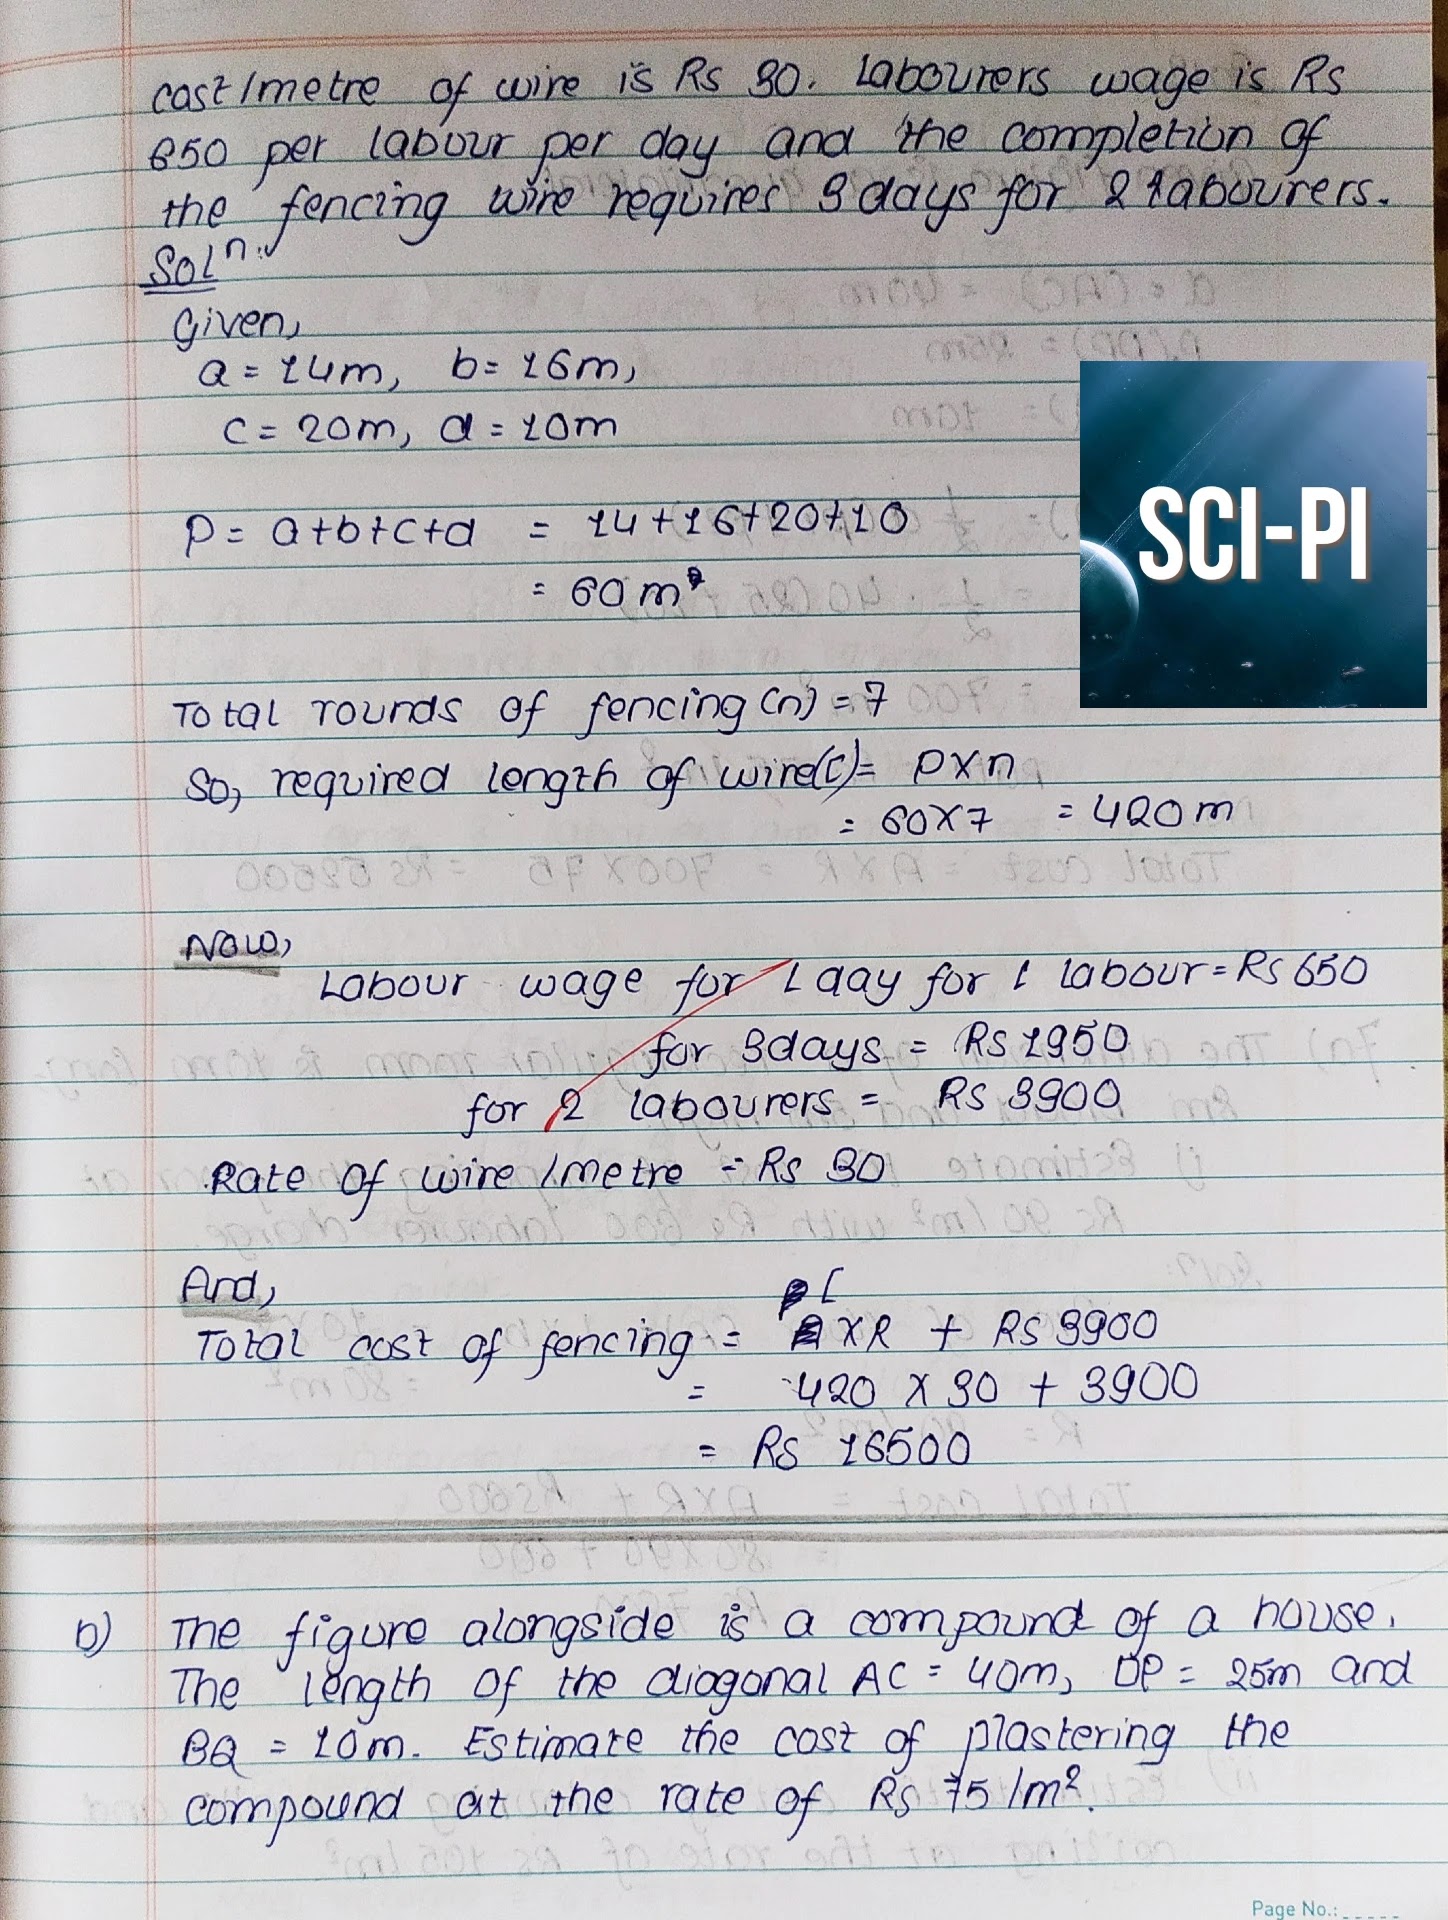 cost/metre of wire is Rs 30. Labourers wage is Rs
650 per labour per day and the completion of
the fencing wire requires 3 days for 2 labourers.
Solⁿ.
Given,
a = 14m, b = 16m,
c = 20m, d = 10m
P = a+b+c+d = 14+16+20+10
= 60 m
SCI-PI
Total rounds of fencing (n) = 7
So, required length of wire(l) = P×n
= 60×7 = 420 m
Now,
Labour wage for 1 day for 1 labour = Rs 650
for 3days = Rs 1950
for 2 labourers = Rs 3900
Rate of wire /metre = Rs 30
And,
Total cost of fencing = l × R + Rs 3900
= 420 × 30 + 3900
= Rs 16500
b) The figure alongside is a compound of a house.
The length of the diagonal AC = 40m, DP = 25m and
BQ = 10m. Estimate the cost of plastering the
compound at the rate of Rs 75/m².
Page No.: